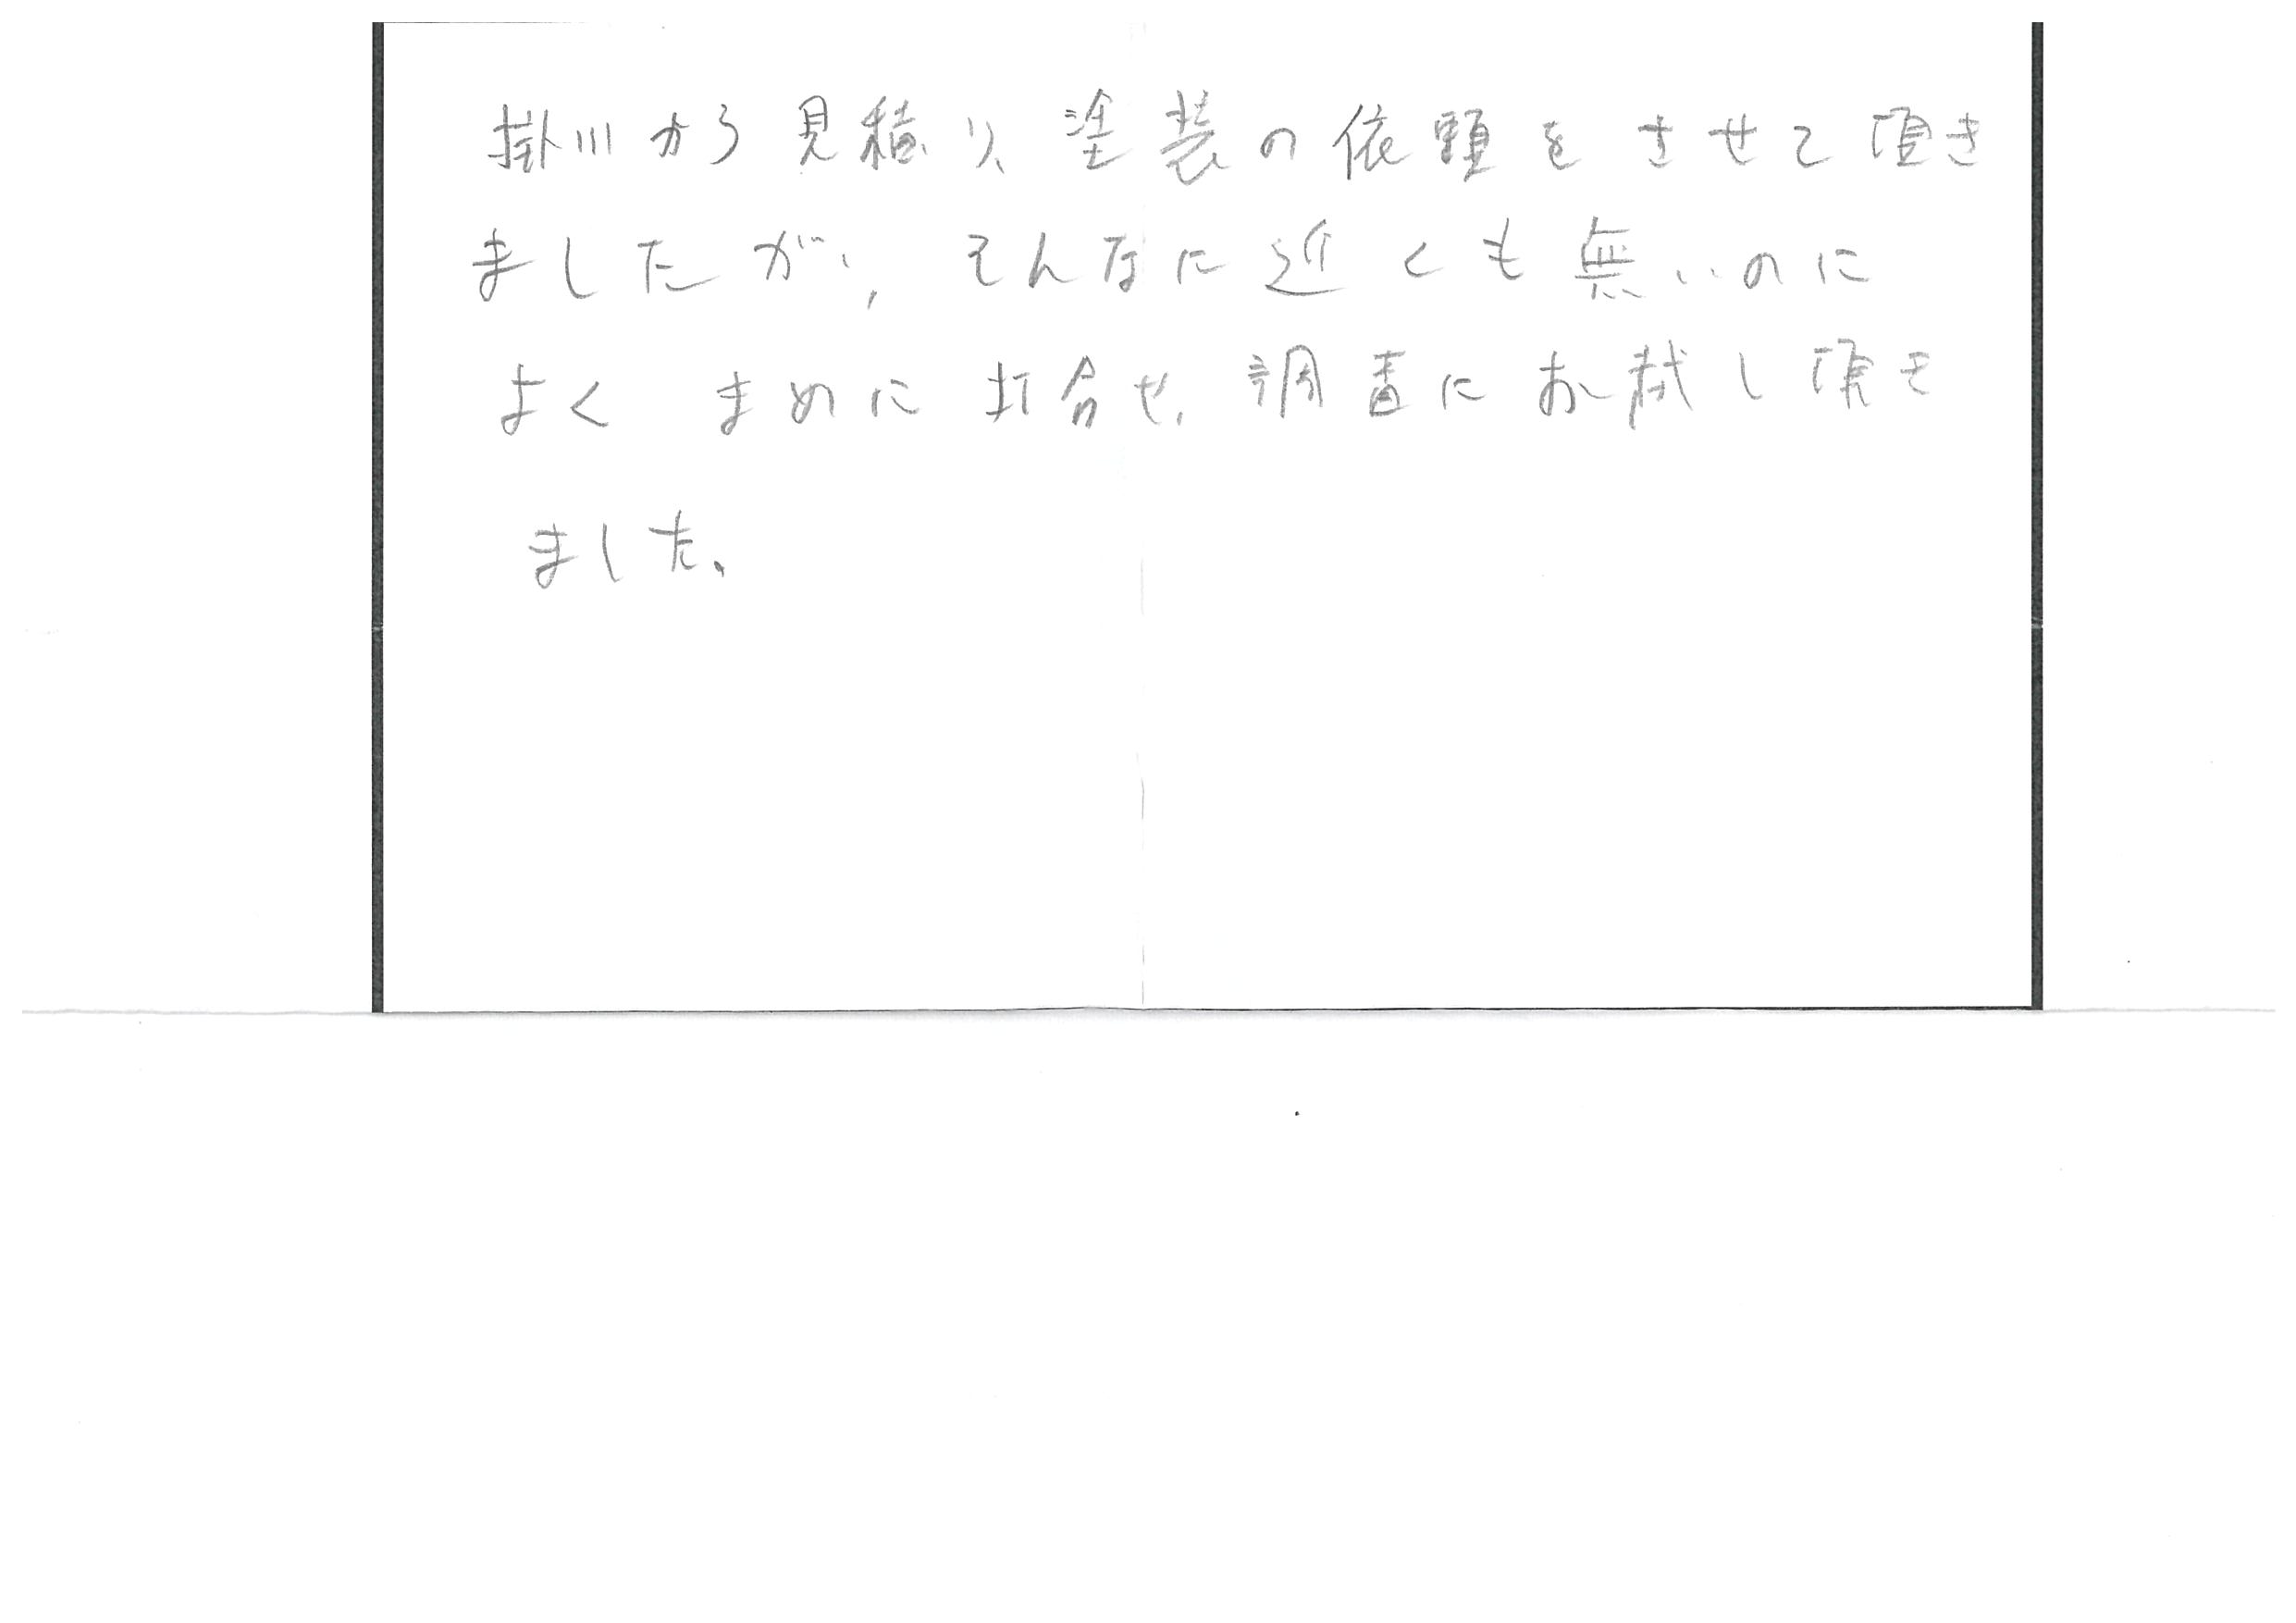 掛川から見積り、塗装の依頼をさせて頂き
ましたが、そんなに近くも無いのに
よくまめに打合せ、調査にお越し頂き
ました。